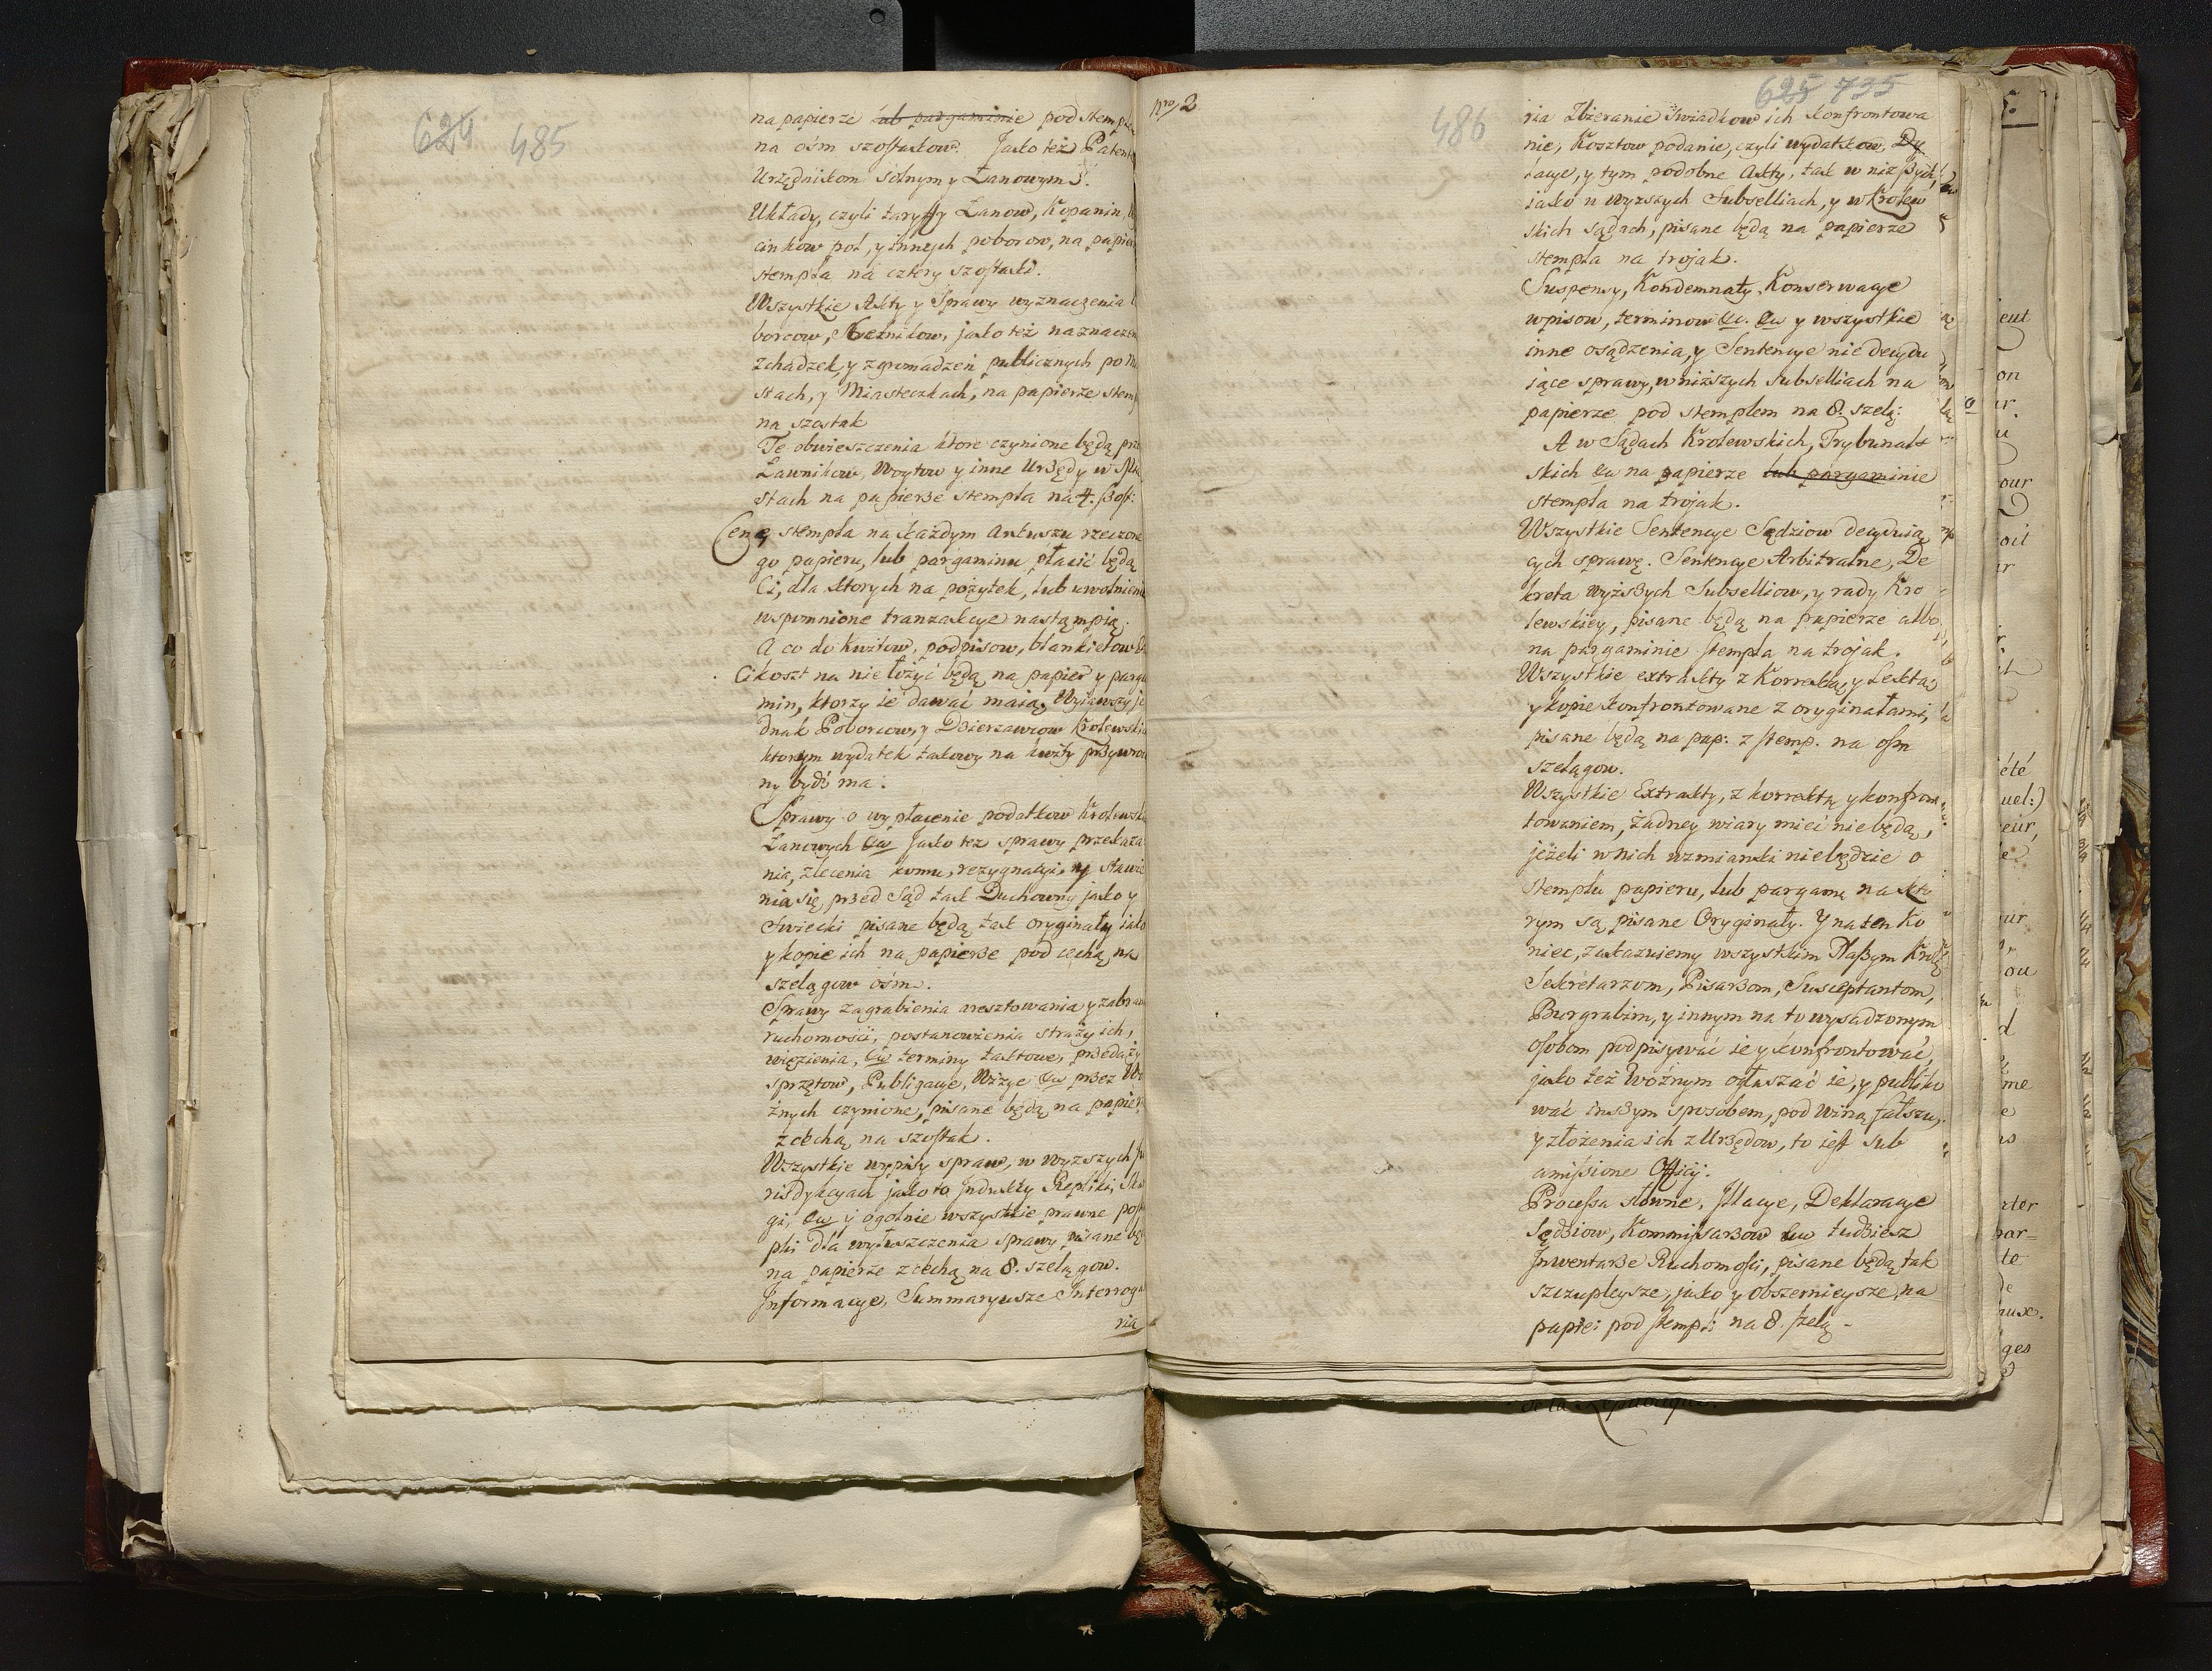 624 485
na papierze lub pargaminie pod stemp
na ośm szostakow. Jako też Patent
Urzędnikom solnym y Łanowym.
Układy, czyli taryffy Łanow, Kopanin,
cinkow pol, y innych poborow, na papier
stempla na cztery szostaki.
Wszystkie Akty y Sprawy wyznaczenia
borcow, jako też naznaczen
Zchadzek, y zgromadzeń publicznych po Mia
stach, y Miasteczkach, na papierze stemp
na szostak
Te obwieszczenia ktore czynione będą prz
Ławnikow, Woytow y inne Urzędy w Mia
stach na papierze stempla na 4. szos:
Cenę stempla na każdym Arkuszu rzeczone
go papieru, lub pargaminu płacić będą
Ci, dla ktorych na pożytek, lub uwolnieni
wspomnione tranzakcye nastąmpią.
A co do Kwitow, podpisow, blankietow
Ci koszt na nie łożyć będą na papier y parga
min, ktorzy ie dawać maią, Wyiąwszy je
dnak Poborcow, y Dzierzawcow Krolewski
ktorym wydatek takowy na kwity przywroco
ny bydź ma.
Sprawy o wypłacenie podatkow Krolewsk
Łanowych &c Jako tez sprawy przekaza
nia, zlecenia komu, rezygnacyi, y stawie
nia się przed Sąd tak Duchowny jako y
Swiecki pisane będą tak oryginały iako
y kopie ich na papierze pod cechą na
szelągow ośm.
Sprawy zagrabienia aresztowania y zabran
ruchomości, postanowienia straży ich,
więzienia, &c terminy taktowe, przedaży
sprzętow, Publigacye, Wizye &c przez Wo
źnych czynione, pisane będą na papier
z cechą na szostak.
Wszystkie wypisy spraw, w wyzszych Ju
risdykcyach jako to Jndukty Repliki, Ska
gi, &c y ogolnie wszystkie prawne postę
pki dla wyłuszczenia sprawy pisane bę
na papierze z cechą na 8. szelągow.
Jnformacye, Summaryusze Interroga
ria
nro 2
486
625 735
ria Zbieranie swiadkow ich konfrontowa
nie, Kosztow podanie, czyli wydatkow, Dy
lacye, y tym podobne Akty, tak w niższych
jako w wyzszych Subselliach, y w Krolew
skich sądach, pisane będą na papierze
stempla na trojak.
Suspensy, Kondemnaty, Konserwacye
wpisow, terminow &c. &c y wszystkie
inne osądzenia, y Sentencye nie decydu
iące sprawy, w niższych subselliach na
papierze pod stemplem na 8. szelą:
A w Sądach Krolewskich, Trybunal
skich &c na papierze lub pargaminie
stempla na trojak.
Wszystkie Sentencye Sędziow decyduią
cych sprawę. Sentencye Arbitralne, De
kreta wyższych Subselliow, y rady Kro
lewskiey, pisane będą na papierze albo
na pargaminie stempla na trojak.
Wszystkie extrakty z Korrektą, y Lektą
y kopie konfrontowane z oryginałami,
pisane będą na pap: z stemp. na osm
szelągow.
Wszystkie Extrakty, z korrektą y konfron
towaniem, żadney wiary mieć nie będą,
jeżeli w nich wzmianki nie będzie o
stemplu papieru, lub pargamą na kto
rym są pisane Oryginały. Y na ten Ko
niec, zakazuiemy wszystkim Naszym
Sekretarzom, Pisarzom, Susceptantom,
Burgrabim, y innym na to wysadzonym
osobom podpisywać ie y konfrontować,
jako też Woźnym ogłaszać ie, y publiko
wać inszym sposobem, pod winą falszu,
y złożenia ich z Urzędow, to iest sub
amissione Officij.
Processa słowne, Jllacye, Deklaracye
Sędziow, Kommissarzow &c tudziesz
Jnwentarze Ruchomosci, pisane będą tak
szczupleysze, jako y obszernieysze, na
papie: pod stemp: na 8. szelą -
de la Republique.